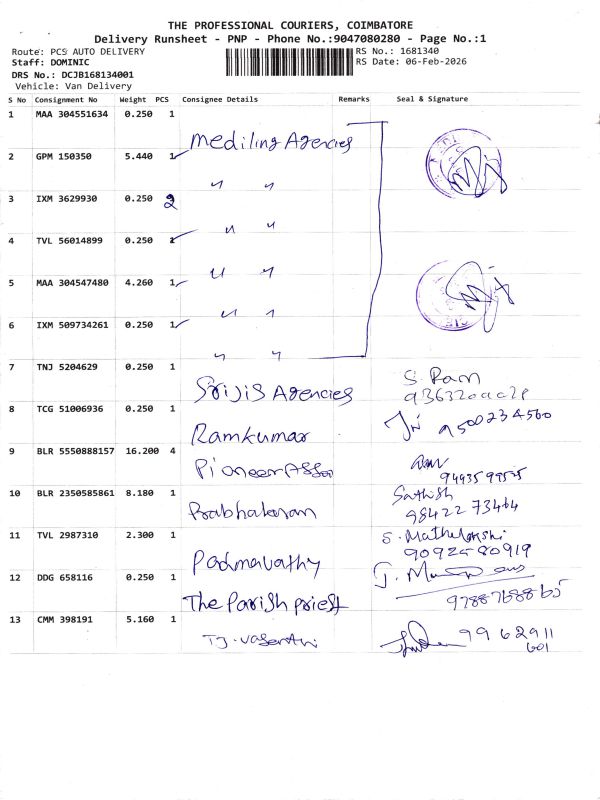 THE PROFESSIONAL COURIERS, COIMBATORE
Delivery Runsheet - PNP - Phone No.:9047080280 - Page No.:1
Route: PCS AUTO DELIVERY
RS No.: 1681340
Staff: DOMINIC
RS Date: 06-Feb-2026
DRS No.: DCJB168134001
Vehicle: Van Delivery
S No Consignment No Weight PCS Consignee Details Remarks Seal & Signature
1 MAA 304551634 0.250 1 Mediling Agencies
2 GPM 150350 5.440 1 " "
3 IXM 3629930 0.250 2 " "
4 TVL 56014899 0.250 1 " "
5 MAA 304547480 4.260 1 " "
6 IXM 509734261 0.250 1 " "
7 TNJ 5204629 0.250 1 Srijis Agencies S. Ram
8 TCG 51006936 0.250 1 Ramkumar 9500234560
9 BLR 5550888157 16.200 4 Pioneer
10 BLR 2350585861 8.180 1 Prabhakaran Sathish
98422 73464
11 TVL 2987310 2.300 1 Padmavathy
9092580919
12 DDG 658116 0.250 1 The Parish priest
13 CMM 398191 5.160 1 TJ. Vasanthi 99 62911
601